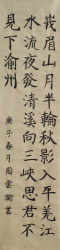 峩眉山月半輪秋影入平羌江
水流夜發清溪向三峽思君不
見下渝州
庚子春月周雲翰書